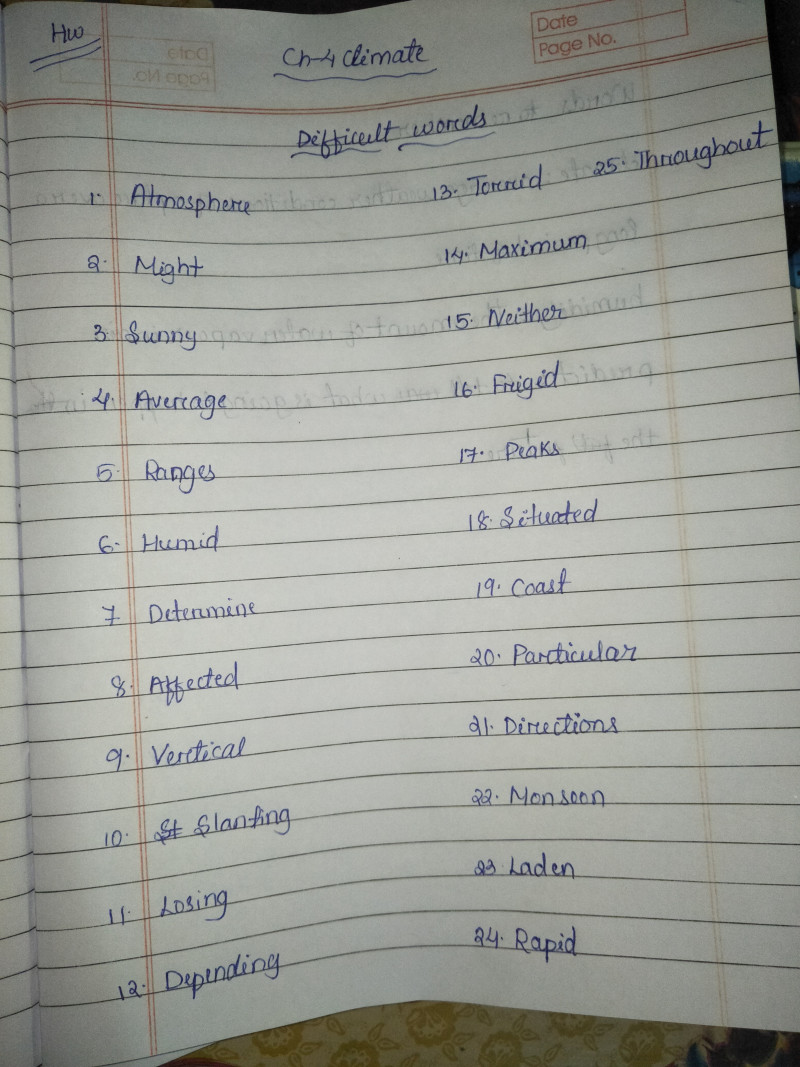 HW
Date
Page No.
Ch-4 Climate
Difficult words
1. Atmosphere
2. Might
3. Sunny
4. Average
5. Ranges
6. Humid
7. Determine
8. Affected
9. Vertical
10. Slanting
11. Losing
12. Depending
13. Torrid
14. Maximum
15. Neither
16. Frigid
17. Peaks
18. Situated
19. Coast
20. Particular
21. Directions
22. Monsoon
23. Laden
24. Rapid
25. Throughout